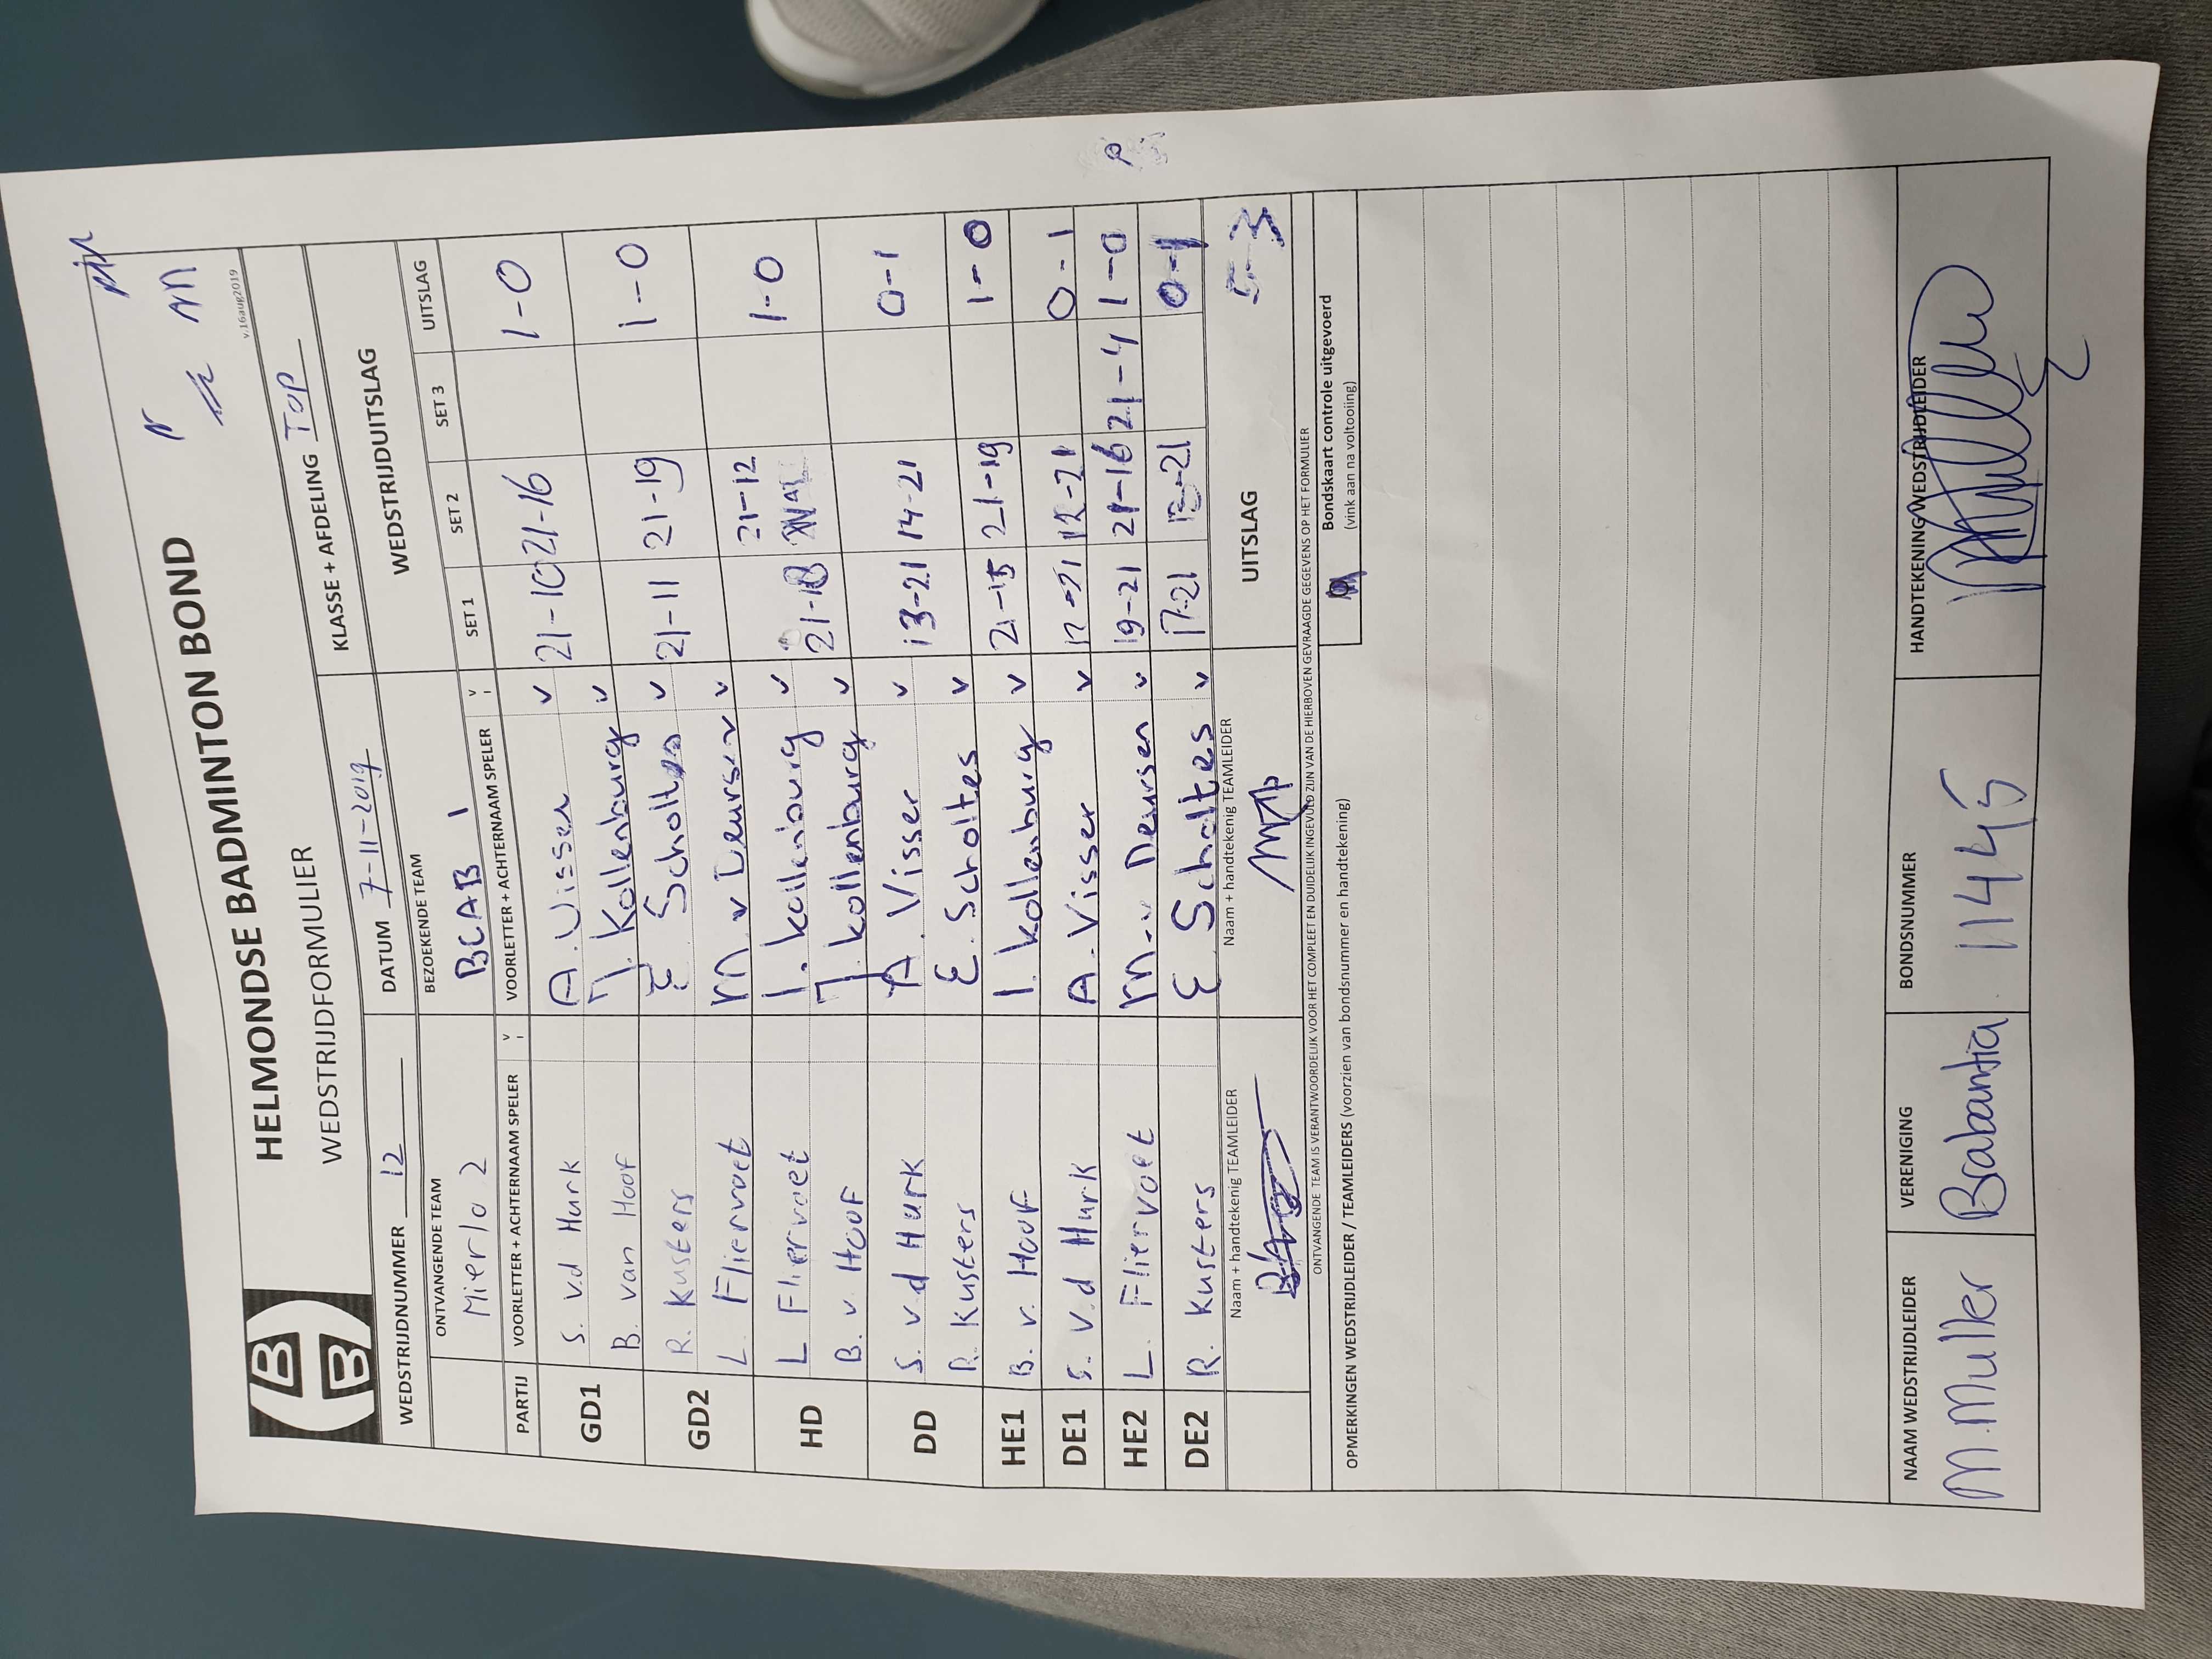 HELMONDSE BADMINTON BOND
WEDSTRIJDFORMULIER
v.16aug2019
WEDSTRIJDNUMMER 12 DATUM 7-11-2019 KLASSE + AFDELING TOP
ONTVANGENDE TEAM BEZOEKENDE TEAM WEDSTRIJDUITSLAG
Mierlo 2 BCAB 1
PARTIJ VOORLETTER + ACHTERNAAM SPELER V VOORLETTER + ACHTERNAAM SPELER V SET 1 SET 2 SET 3 UITSLAG
GD1 S. v.d Hurk A. Visser v 21-10 21-16 1-0
B. van Hoof J. Kollenburg v
GD2 R. Kusters E. Scholtes v 21-11 21-19 1-0
L. Fliervoet M v Deursen v
HD L Fliervoet I. Kollenburg v 21-12 1-0
B. v. Hoof J. kollenburg v 21-18
DD S. v.d Hurk A. Visser v 13-21 14-21 0-1
R. Kusters E. Scholtes v
HE1 B. v. Hoof I. kollenburg v 21-15 21-19 1-0
DE1 S. v.d Hurk A. Visser v 12-21 0-1
HE2 L. Fliervoet M.v. Deursen v 19-21 21-16 21-4 1-0
DE2 R. Kusters E Scholtes v 17-21 0-1
Naam + handtekenig TEAMLEIDER Naam + handtekenig TEAMLEIDER UITSLAG 5-3
ONTVANGENDE TEAM IS VERANTWOORDELIJK VOOR HET COMPLEET EN DUIDELIJK INGEVULD ZIJN VAN DE HIERBOVEN GEVRAAGDE GEGEVENS OP HET FORMULIER
Bondskaart controle uitgevoerd
(vink aan na voltooiing)
OPMERKINGEN WEDSTRIJDLEIDER / TEAMLEIDERS (voorzien van bondsnummer en handtekening)
NAAM WEDSTRIJDLEIDER VERENIGING BONDSNUMMER HANDTEKENING WEDSTRIJDLEIDER
M. Muller Brabantia 11445